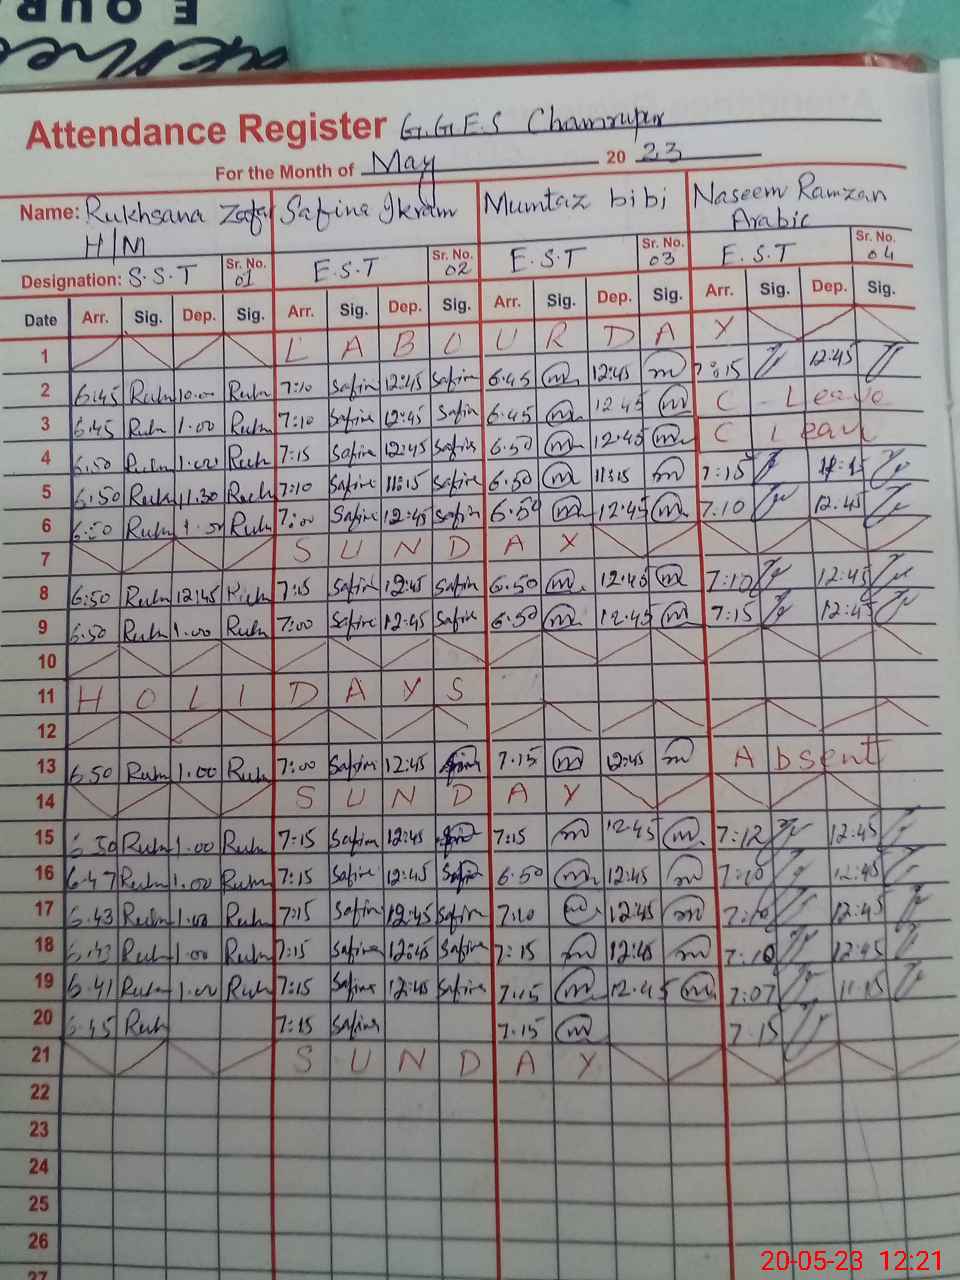 E OUR
Attendance Register G.G.E.S Chamrupur
For the Month of May 2023
Name: Rukhsana Zafar Safina Ikram Mumtaz bibi Naseem Ramzan
H/M Arabic
Designation: S.S.T Sr. No. 01 E.S.T Sr. No. 02 E.S.T Sr. No. 03 E.S.T Sr. No. 04
Date Arr. Sig. Dep. Sig. Arr. Sig. Dep. Sig. Arr. Sig. Dep. Sig. Arr. Sig. Dep. Sig.
1 L A B O U R D A Y
2 6:45 Rukh 10.00 Rukh 7:10 Safina 12:45 Safina 6.45 m 12:45 m 7:15 12:45
3 6.45 Rukh 1.00 Rukh 7:10 Safina 12:45 Safina 6.45 m 12 45 m C - Leave
4 6.50 Rukh 1.00 Rukh 7:15 Safina 12:45 Safina 6.50 m 12:45 m C Leave
5 6.50 Rukh 11.30 Rukh 7:10 Safina 11:15 Safina 6.50 m 11:15 m 7:15
6 6:50 Rukh Rukh 7:00 Safina 12:45 Safina 6.50 m 12:45 m 7:10 12.45
7 S U N D A Y
8 6:50 Rukh 12:45 Rukh 7:15 Safina 12:45 Safina 6.50 m 12:45 m 7:10 12:45
9 6.50 Rukh 1.00 Rukh 7:00 Safina 12:45 Safina 6.50 m 12:45 m 7:15 12:45
10
11 H O L I D A Y S
12
13 6.50 Rukh 1.00 Rukh 7:00 Safina 12:45 7.15 m 12:45 m Absent
14 S U N D A Y
15 6.50 Rukh 1.00 Rukh 7:15 Safina 12:45 7:15 m 12:45 m 7:12 12:45
16 6.47 Rukh 1.00 Rukh 7:15 Safina 12:45 Safina 6.50 m 12:45 m 7:10 12:45
17 6.43 Rukh 1.00 Rukh 7:15 Safina 12:45 Safina 7:10 m 12:45 m 7:10 12:45
18 6.43 Rukh 1.00 Rukh 7:15 Safina 12:45 Safina 7:15 m 12:45 m 7:10 12:45
19 6.41 Rukh 1.00 Rukh 7:15 Safina 12:45 Safina 7:15 m 12.45 m 7:07 11:15
20 6.45 Rukh 7:15 Safina 7.15 m 7.15
21 S U N D A Y
22
23
24
25
26
27
20-05-23 12:21